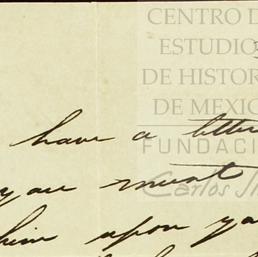 CENTRO D
ESTUDIO
DE HISTOR
DE MEXIC
FUNDACI
Carlos Sl
have a lette
you must
him upon yo